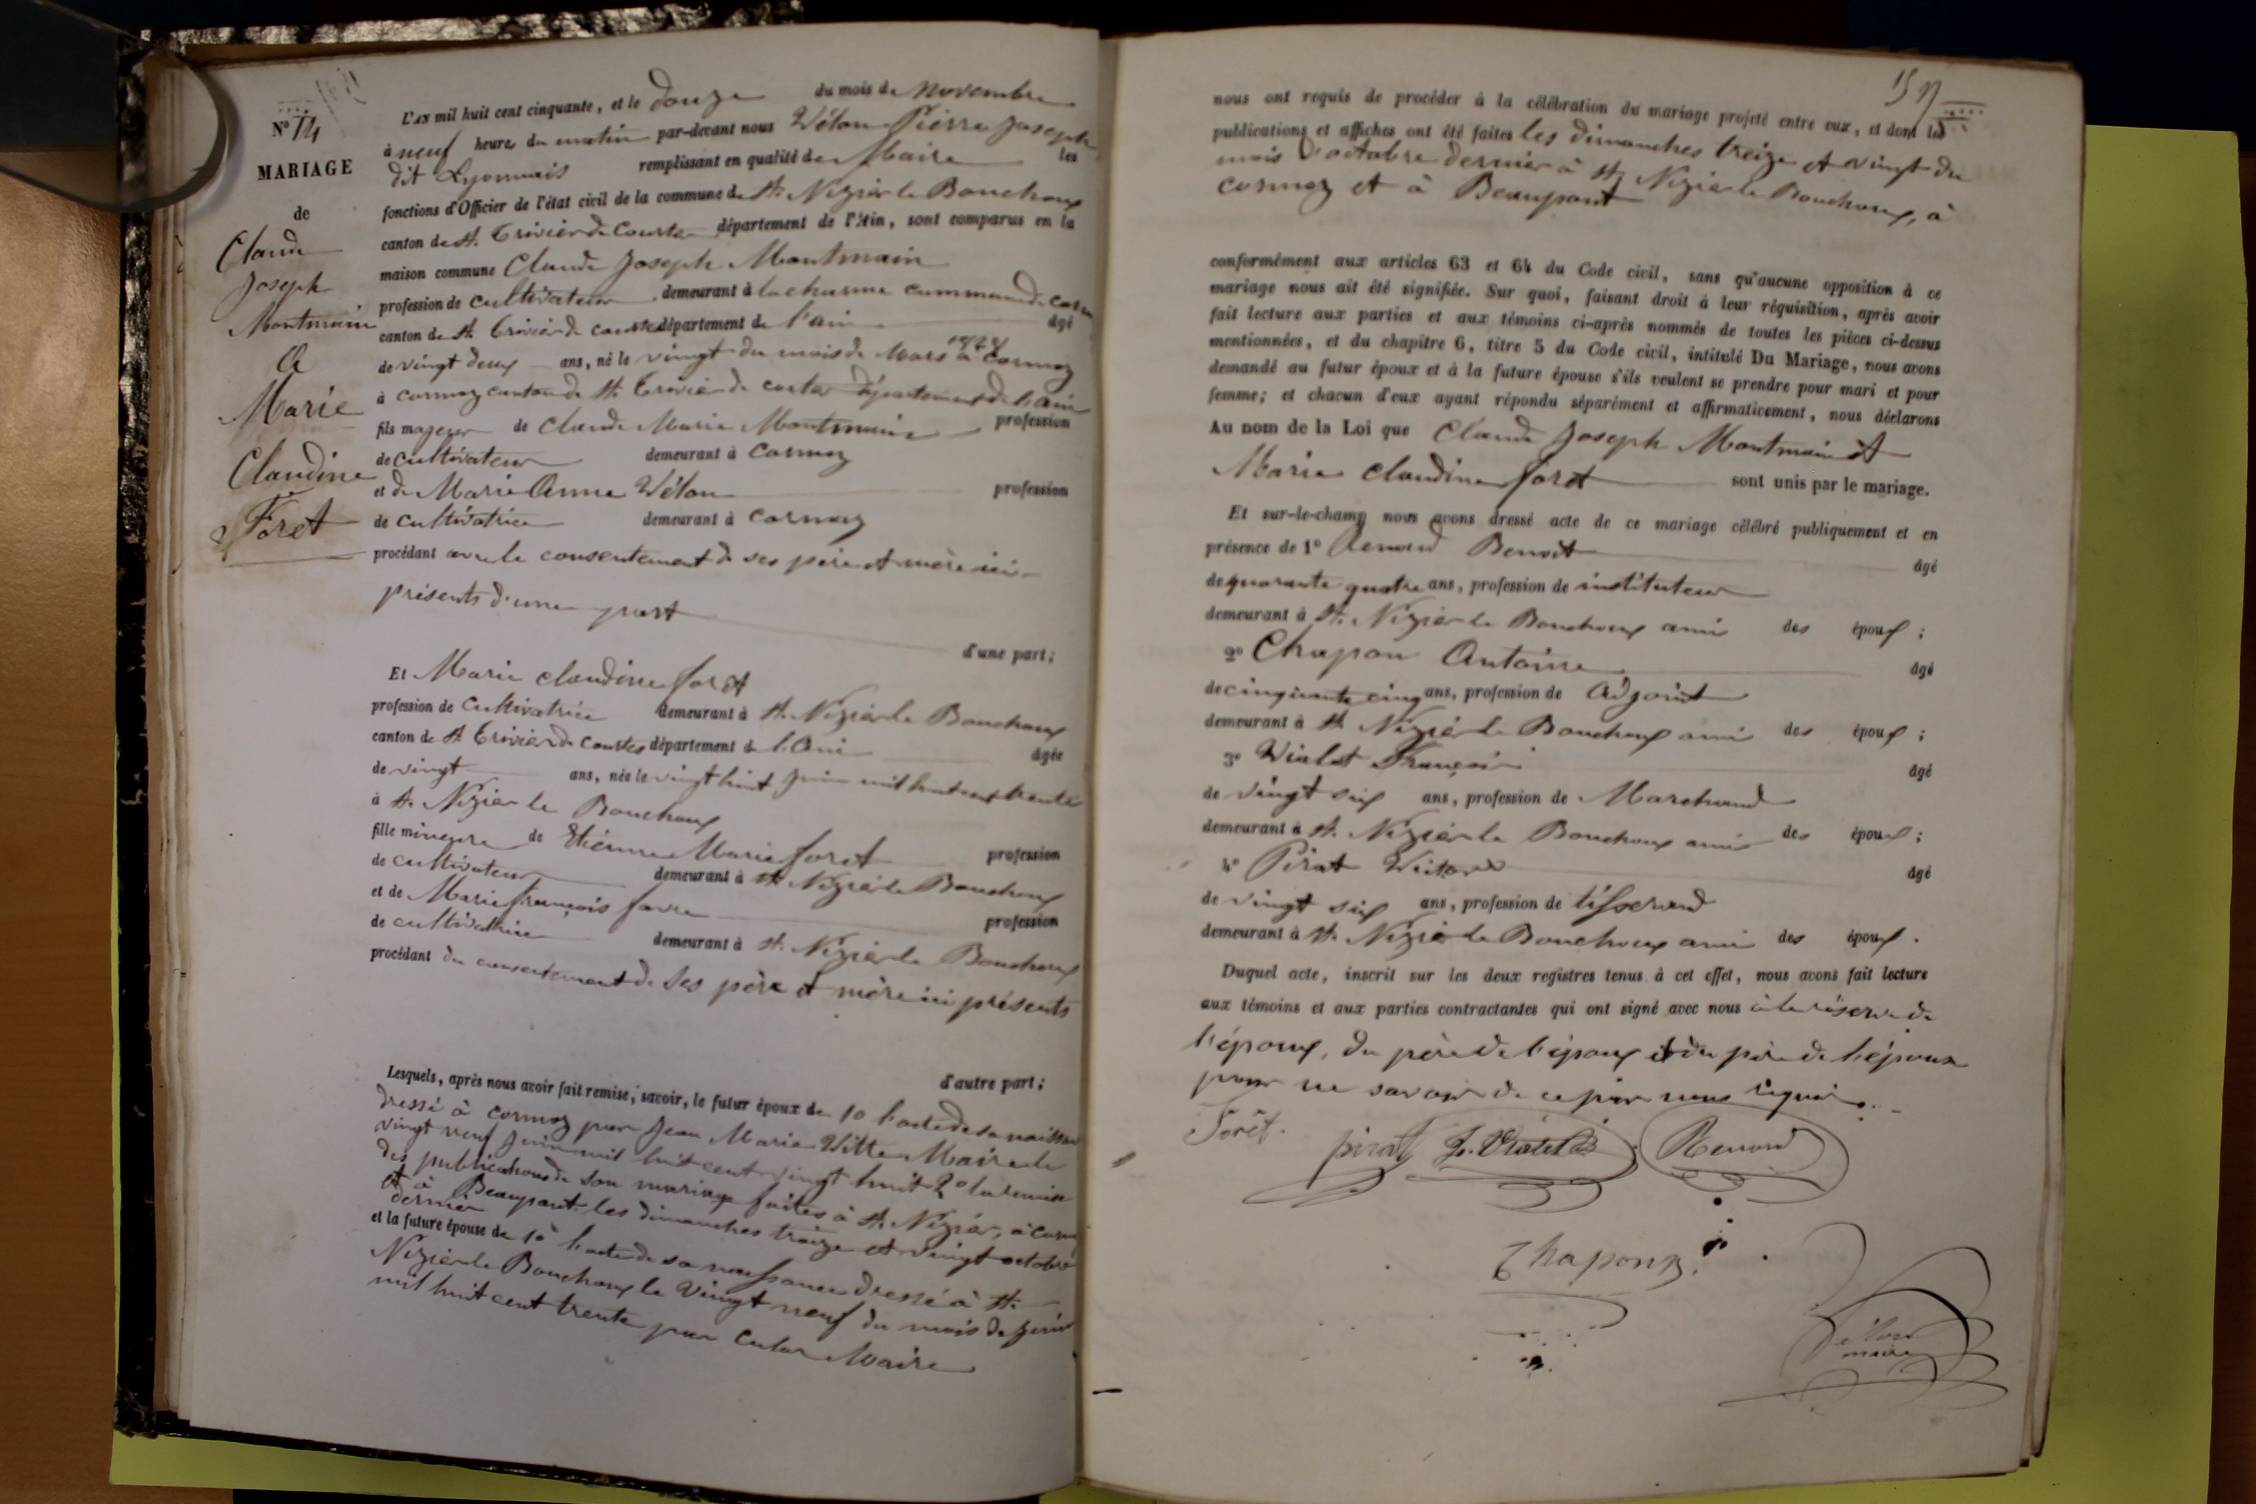 N° 14
MARIAGE
de
Claude
Joseph
Montmain
&
Marie
Claudine
Foret
L'AN mil huit cent cinquante, et le douze du mois de novembre
à neuf heures du matin par-devant nous Vélon Pierre Joseph
dit Lyonnais remplissant en qualité de Maire les
fonctions d'Officier de l'état civil de la commune de St. Nizier le Bouchoux
canton de St. Trivier de Courtes département de l'Ain, sont comparus en la
maison commune Claude Joseph Montmain
profession de cultivateur demeurant à la charme commune de
canton de St. Trivier de courtes département de l'ain âgé
de vingt deux ans, né le vingt du mois de Mars 1828 à Cormoz
à cormoz canton de St. Trivier de courtes département de l'ain
fils majeur de Claude Marie Montmain profession
de cultivateur demeurant à Cormoz
et de Marie Anne Vélon profession
de cultivatrice demeurant à Cormoz
procédant avec le consentement de ses père et mère ici
présents d'une part
d'une part;
Et Marie Claudine foret
profession de Cultivatrice demeurant à St. Nizier le Bouchoux
canton de St Trivier de Courtes département de l'Ain âgée
de vingt ans, née le vingt huit Juin mil huit cent trente
à St. Nizier le Bouchoux
fille mineure de Etienne Marie foret profession
de cultivateur demeurant à St Nizier le Bouchoux
et de Marie françois favre profession
de cultivatrice demeurant à St. Nizier le Bouchoux
procédant du consentement de ses père et mère ici présents
d'autre part;
Lesquels, après nous avoir fait remise, savoir, le futur époux de 1o l'acte de sa naissance
dressé à cormoz par Jean Marie Maire le
vingt neuf Juin mil huit cent vingt huit 2o la remise
des publications de son mariage faites à St. Nizier, à
et à Beaupont les dimanches treize et vingt octobre
dernier
et la future épouse de 1o l'acte de sa naissance dressé à St.
Nizier le Bouchoux le vingt neuf du mois de juin
mil huit cent trente par Maire
nous ont requis de procéder à la célébration du mariage projeté entre eux, et dont les
publications et affiches ont été faites les dimanches treize et vingt du
mois d'octobre dernier à St. Nizier le Bouchoux, à
cormoz et à Beaupont
conformément aux articles 63 et 64 du Code civil, sans qu'aucune opposition à ce
mariage nous ait été signifiée. Sur quoi, faisant droit à leur réquisition, après avoir
fait lecture aux parties et aux témoins ci-après nommés de toutes les pièces ci-dessus
mentionnées, et du chapitre 6, titre 5 du Code civil, intitulé Du Mariage, nous avons
demandé au futur époux et à la future épouse s'ils veulent se prendre pour mari et pour
femme; et chacun d'eux ayant répondu séparément et affirmativement, nous déclarons
Au nom de la Loi que Claude Joseph Montmain et
Marie Claudine foret sont unis par le mariage.
Et sur-le-champ nous avons dressé acte de ce mariage célébré publiquement et en
présence de 1° Renoud Benoit âgé
de quarante quatre ans, profession de instituteur
demeurant à St. Nizier le Bouchoux ami des époux;
2° Chapon Antoine âgé
de cinquante cinq ans, profession de Adjoint
demeurant à St Nizier le Bouchoux ami des époux;
3° Vialet François âgé
de vingt six ans, profession de Marchand
demeurant à St. Nizier le Bouchoux ami des époux;
4° Pirat Victor âgé
de vingt six ans, profession de tisserand
demeurant à St. Nizier le Bouchoux ami des époux.
Duquel acte, inscrit sur les deux registres tenus à cet effet, nous avons fait lecture
aux témoins et aux parties contractantes qui ont signé avec nous à la réserve de
l'époux, du père de l'époux et du père de l'épouse
pour ne savoir de ce par nous requis.
Forêt. pirat Vialet Renoud
Chapon
Vélon
maire